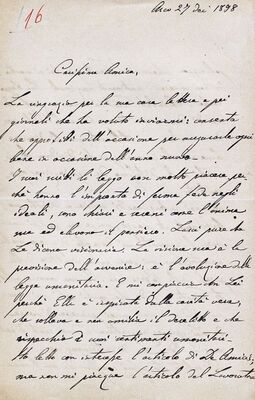 16
Arco 27 dec 1898
Carissimo Amico,
La ringrazio per la sua cara lettera e pei
giornali che ha voluto inviarmi: consenta
che approfitti dell'occasione per augurarle ogni
bene in occasione dell'anno nuovo.
I suoi scritti li leggo con molto piacere per
chè hanno l'impronta di ferma fede negli
ideali, sono chiari e sereni come l'anima
sua ed elevano il pensiero. Lasci pure che
La dicano visionario. La visione sua è la
previsione dell'avvenire: è l'evoluzione della
legge umanitaria. E mi compiaccio con Lei
perchè Ella è inspirato dalla carità vera,
che solleva e non umilia il derelitto e che
rispecchia i suoi sentimenti umanitari.
Ho letto con interesse l'articolo di De Amicis;
ma non mi piacque l'articolo del Lavorato